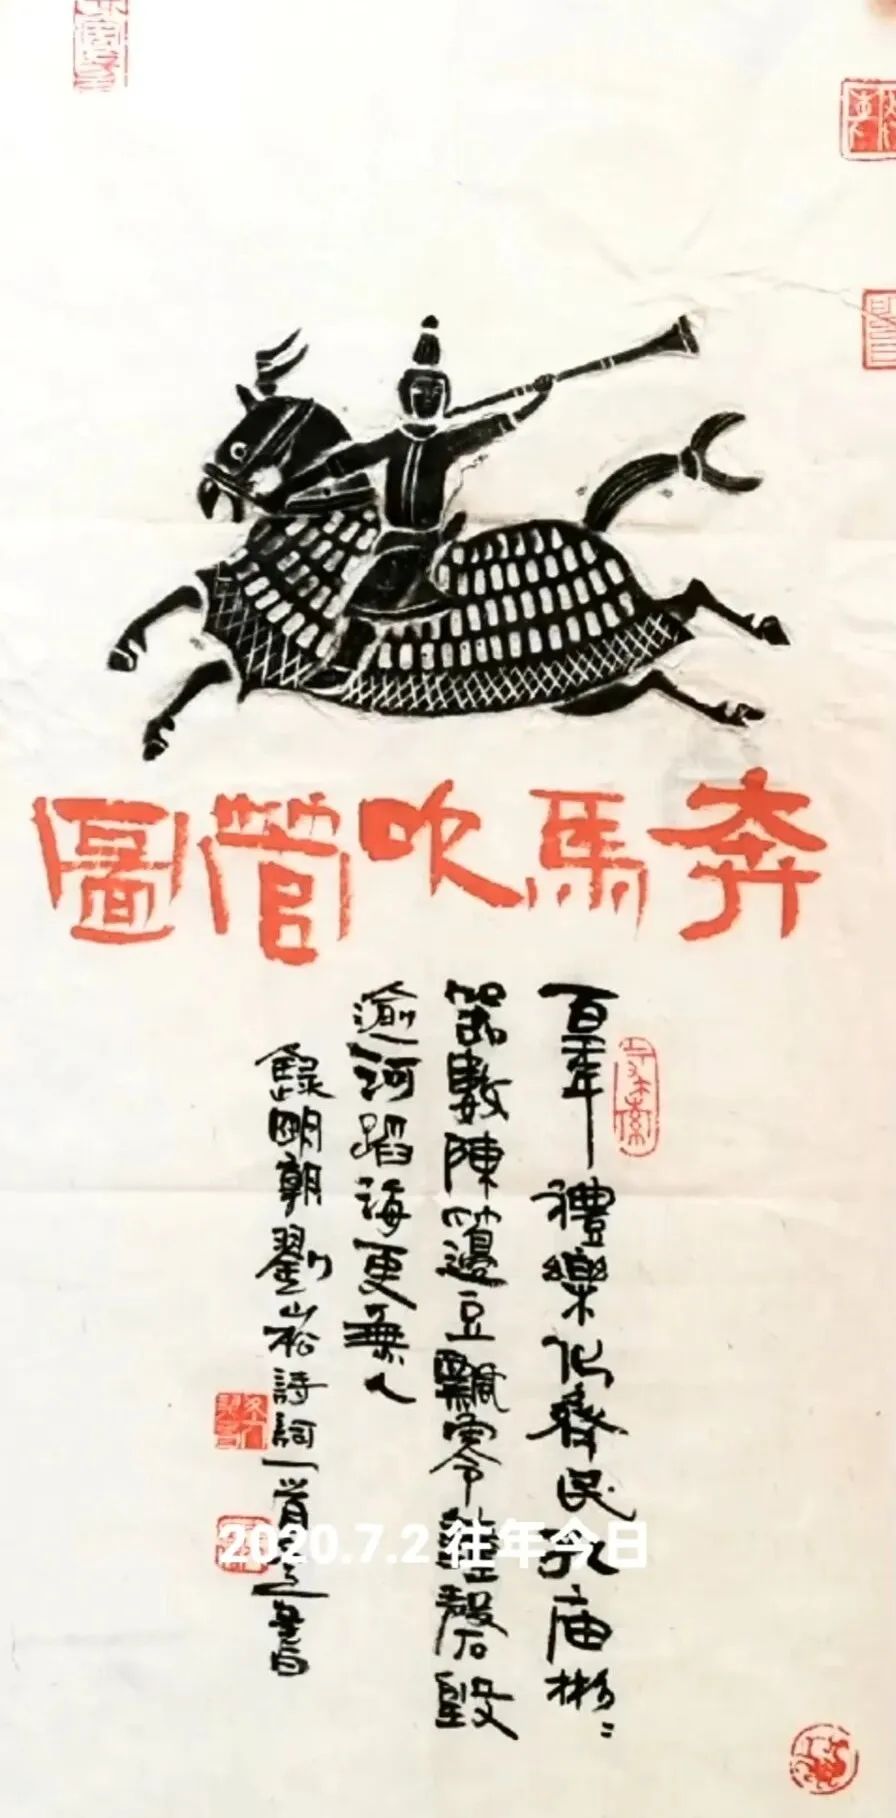 奔馬吹管圖
百年禮樂化齊民孔庙彬彬
器數陳籩豆飄零鐘磬毀
逾河蹈海更無人
錄明朝劉崧詩詞一首
2020.7.2 往年今日